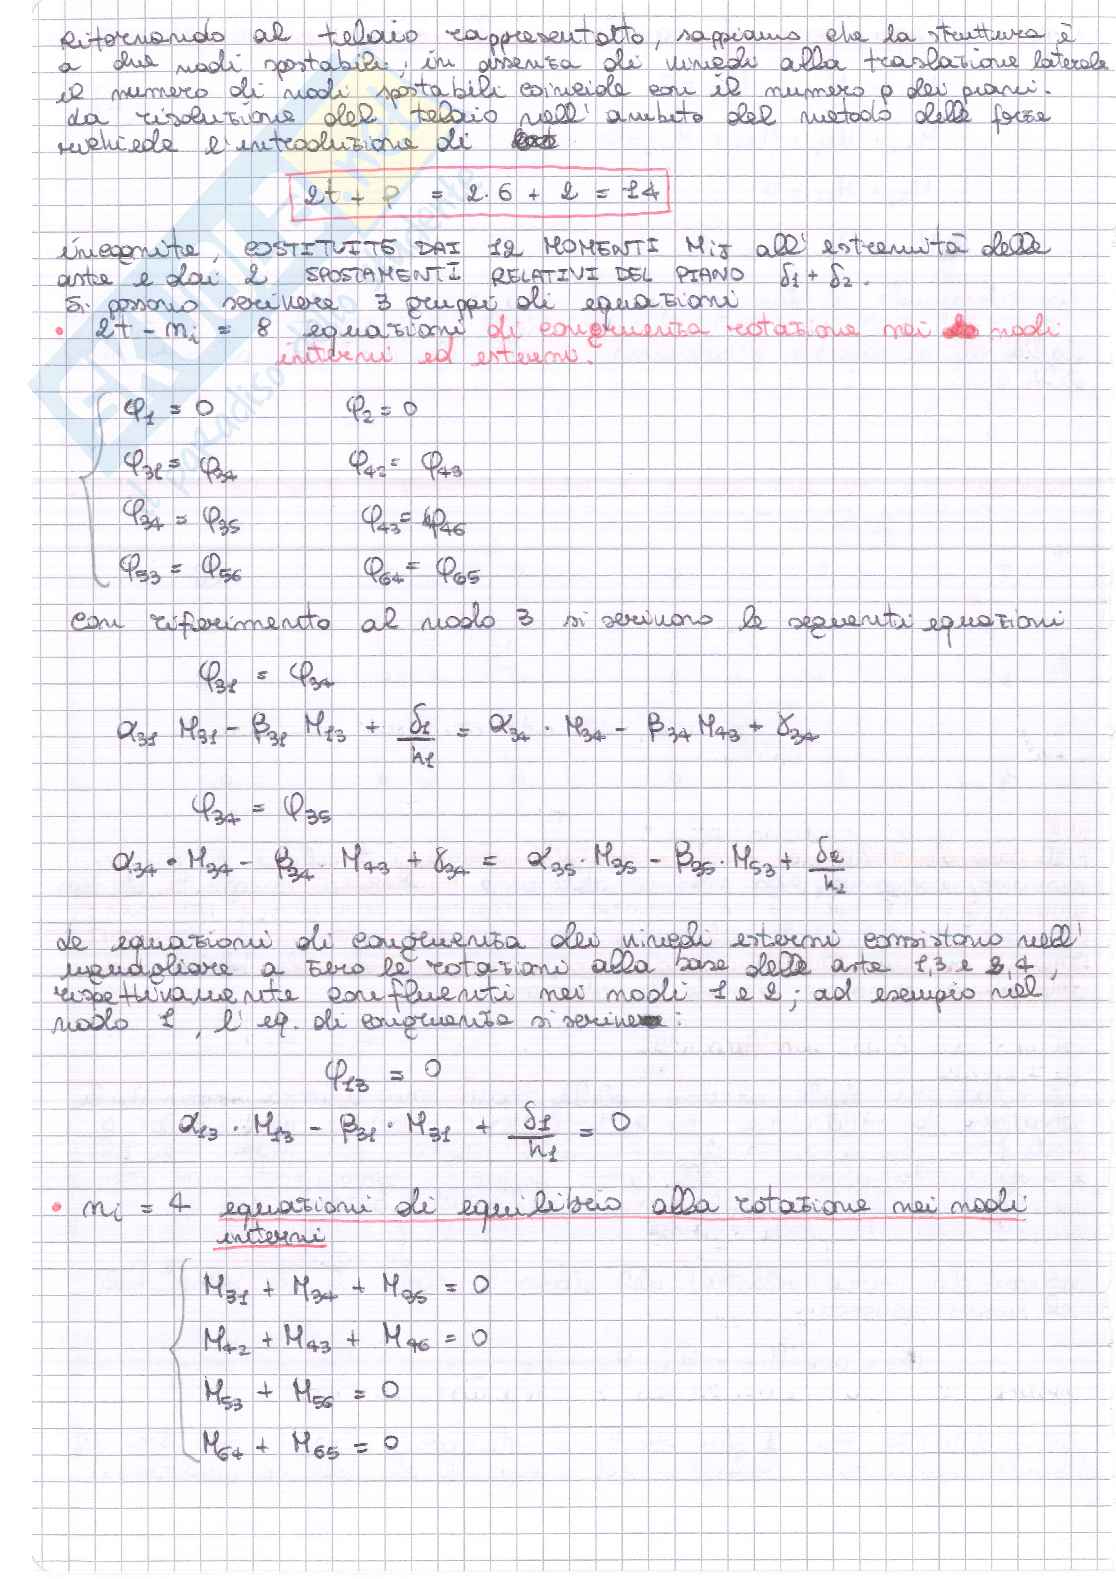 Ritornando al telaio rappresentato, sappiamo che la struttura è
a due nodi spostabili, in assenza di vincoli alla traslazione laterale
il numero di nodi spostabili coincide con il numero p dei piani.
La risoluzione del telaio nell'ambito del metodo delle forze
richiede l'introduzione di
2t + p = 2·6 + 2 = 14
incognite, COSTITUITE DAI 12 MOMENTI Mij all'estremità delle
aste e dai 2 SPOSTAMENTI RELATIVI DEL PIANO δ1 + δ2.
Si possono scrivere 3 gruppi di equazioni
• 2t - ni = 8 equazioni di congruenza rotazione nei nodi
interni ed esterni.
φ1 = 0 φ2 = 0
φ31 = φ34 φ42 = φ43
φ34 = φ35 φ43 = φ46
φ53 = φ56 φ64 = φ65
con riferimento al nodo 3 si scrivono le seguenti equazioni
φ31 = φ34
α31 M31 - β31 M13 + δ1/h1 = α34 · M34 - β34 M43 + γ34
φ34 = φ35
α34 · M34 - β34 · M43 + γ34 = α35 · M35 - β35 · M53 + δ2/h2
Le equazioni di congruenza dei vincoli esterni consistono nell'
uguagliare a zero le rotazioni alla base delle aste 1,3 e 2,4,
rispettivamente confluenti nei nodi 1 e 2; ad esempio nel
nodo 1, l'eq. di congruenza si scrive:
φ13 = 0
α13 · M13 - β31 · M31 + δ1/h1 = 0
• ni = 4 equazioni di equilibrio alla rotazione nei nodi
interni
M31 + M34 + M35 = 0
M42 + M43 + M46 = 0
M53 + M56 = 0
M64 + M65 = 0